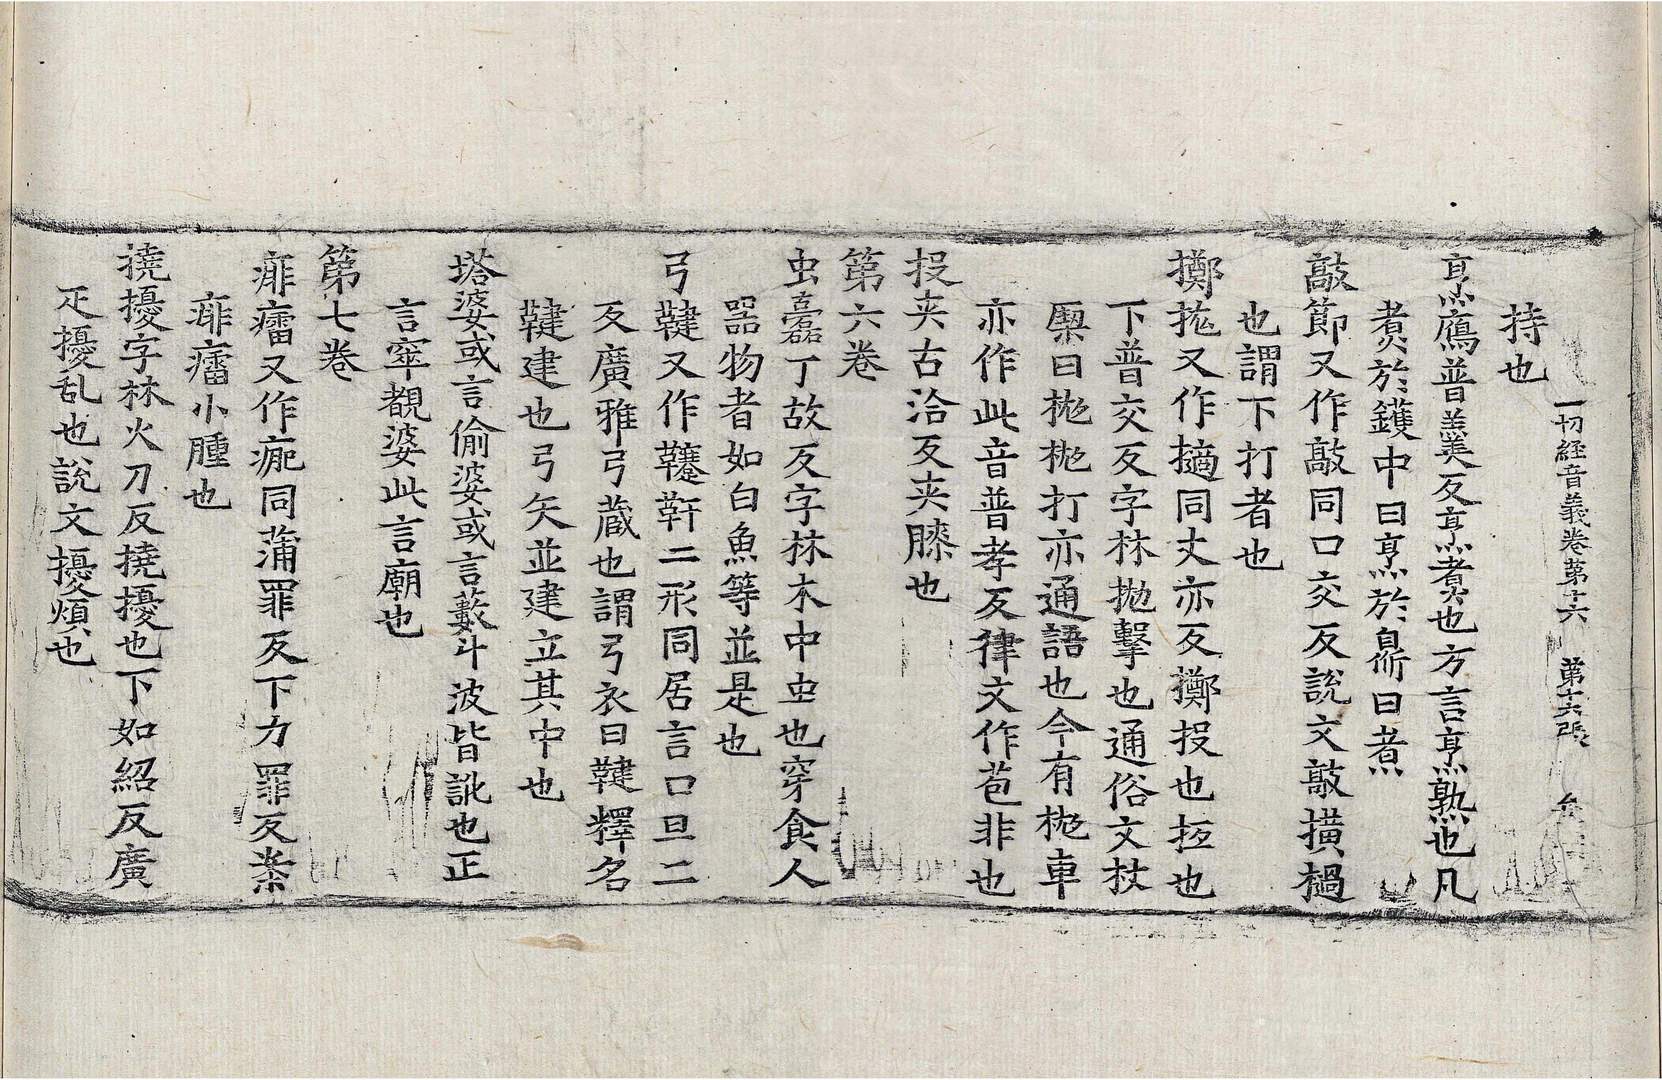 一切經音義卷第十六 第十六張
持也
烹鴈普羹反烹煑也方言烹熟也凡
煑於鑊中曰烹於鬵曰煑
敲節又作敲同口交反說文敲橫檛
也謂下打者也
擲拋又作擿同丈亦反擲投也抂也
下普交反字林拋擊也通俗文杖
㩢曰拋拋打亦通語也今有拋車
亦作此音普孝反律文作苞非也
投夾古洽反夾膝也
第六卷
虫蠧丁故反字林木中虫也穿食人
器物者如白魚等並是也
弓鞬又作韇鞬二形同居言口旦二
反廣雅弓蔵也謂弓衣曰鞬釋名
鞬建也弓矢並建立其中也
塔婆或言偷婆或言藪斗波皆訛也正
言窣覩婆此言廟也
第七卷
痱癗又作疕同蒲罪反下力罪反𦁉
痱癗小腫也
撓擾字林火刀反撓擾也下如紹反廣
疋擾乱也說文擾煩也